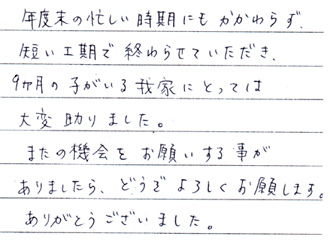 年度末の忙しい時期にもかかわらず、
短い工期で終わらせていただき、
9ヶ月の子がいる我家にとっては
大変助りました。
またの機会をお願いする事が
ありましたら、どうぞよろしくお願します。
ありがとうございました。